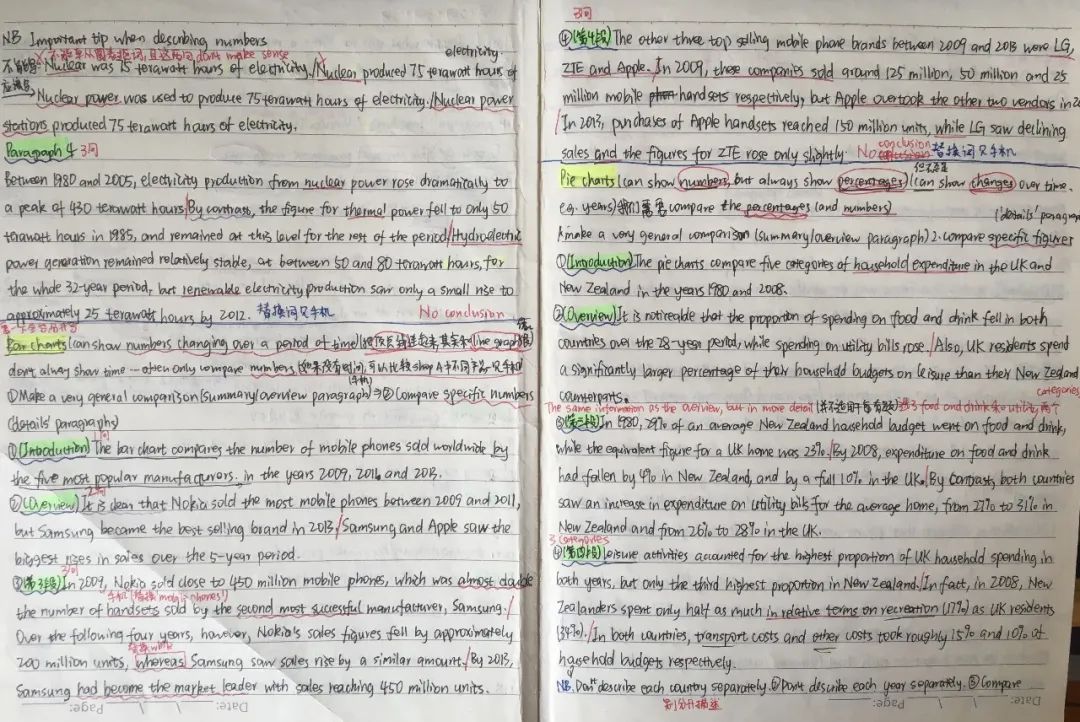 NB Important tip when describing numbers
不能单从图表换词,且这两句 don't make sense
electricity.
Nuclear was 75 terawatt hours of electricity./Nuclear produced 75 terawatt hours of
应该是
Nuclear power was used to produce 75 terawatt hours of electricity./Nuclear power
stations produced 75 terawatt hours of electricity.
Paragraph 4 3句
Between 1980 and 2005, electricity production from nuclear power rose dramatically to
a peak of 430 terawatt hours/By contrast, the figure for thermal power fell to only 50
terawatt hours in 1985, and remained at this level for the rest of the period/Hydroelectric
power generation remained relatively stable, at between 50 and 80 terawatt hours, for
the whole 32-year period, but renewable electricity production saw only a small rise to
approximately 25 terawatt hours by 2012. 替换词见手机 No conclusion
Bar charts (can show numbers changing over a period of time)
don't always show time - often only compare numbers
(手机)
①Make a very general comparison (summary/overview paragraph) → ② Compare specific numbers
(details' paragraphs)
1句
①(Introduction) The bar chart compares the number of mobile phones sold worldwide by
the five most popular manufacturers, in the years 2009, 2011 and 2013.
2句
②(Overview) It is clear that Nokia sold the most mobile phones between 2009 and 2011,
but Samsung became the best selling brand in 2013/Samsung and Apple saw the
biggest rises in sales over the 5-year period.
3句
③(第3段)In 2009, Nokia sold close to 450 million mobile phones, which was almost double
手机(替换 mobile phones')
the number of handsets sold by the second most successful manufacturer, Samsung./
Over the following four years, however, Nokia's sales figures fell by approximately
替换while
200 million units, whereas Samsung saw sales rise by a similar amount./By 2013,
Samsung had become the market leader with sales reaching 450 million units.
Date: Page:
3句
④(第4段)The other three top selling mobile phone brands between 2009 and 2013 were LG,
ZTE and Apple./In 2009, these companies sold around 125 million, 50 million and 25
million mobile handsets respectively, but Apple overtook the other two vendors in
/In 2013, purchases of Apple handsets reached 150 million units, while LG saw declining
conclusion
sales and the figures for ZTE rose only slightly No 替换词见手机
但不总是
Pie charts (can show numbers, but always show percentages)(can show changes over time.
e.g. years)我们需要 compare the percentages (and numbers)
('details' paragraph
1.make a very general comparison (summary/overview paragraph) 2.compare specific figures
①(Introduction) The pie charts compare five categories of household expenditure in the UK and
New Zealand in the years 1980 and 2008.
②(Overview) It is noticeable that the proportion of spending on food and drink fell in both
countries over the 28-year period, while spending on utility bills rose./Also, UK residents spend
a significantly larger percentage of their household budgets on leisure than their New Zealand
counterparts.
categories
The same information as the overview, but in more detail (并不适用于每篇)选了food and drink和utility两个
③(第三段)In 1980, 29% of an average New Zealand household budget went on food and drink,
while the equivalent figure for a UK home was 25%./By 2008, expenditure on food and drink
had fallen by 4% in New Zealand, and by a full 10% in the UK./By Contrast, both countries
saw an increase in expenditure on utility bills for the average home, from 27% to 31% in
New Zealand and from 26% to 28% in the UK.
3 categories
④(第四段)Leisure activities accounted for the highest proportion of UK household spending in
both years, but only the third highest proportion in New Zealand./In fact, in 2008, New
Zealanders spent only half as much in relative terms on recreation (17%) as UK residents
(34%)./In both countries, transport costs and other costs took roughly 15% and 10% of
household budgets respectively.
NB. Don't describe each country separately. ②Don't describe each year separately. ③Compare
别分开描述
Date: Page: